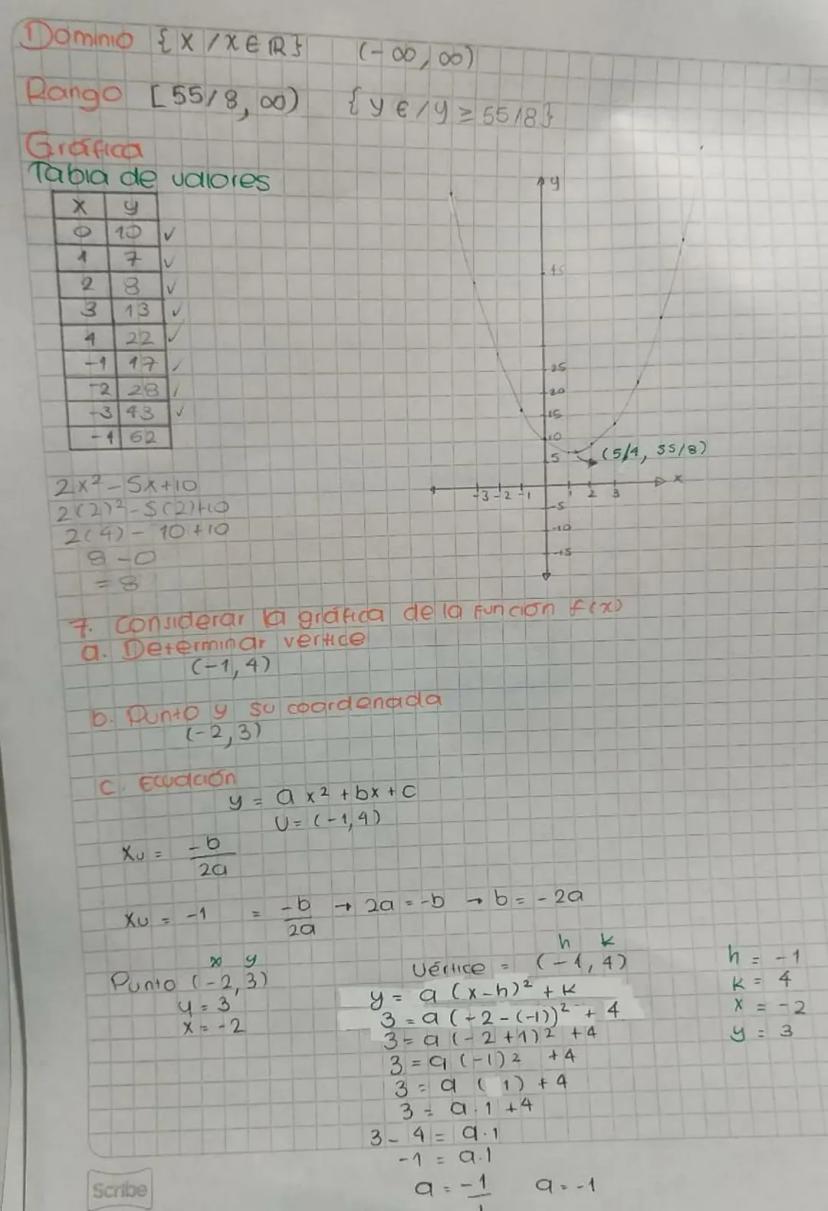 Dominio {x/x∈ℝ} (-∞,∞)
Rango [55/8,∞) {y∈/y≥55/8}
Gráfica
Tabla de valores
x y
0 10 ✓
1 7 ✓
2 8 ✓
3 13 ✓
4 22 ✓
-1 17 ✓
-2 28 ✓
-3 43 ✓
-4 62
y
45
25
20
15
10
5
(5/4, 55/8)
-3 -2 -1 1 2 3 x
-5
-10
-15
2x²-5x+10
2(2)²-5(2)+10
2(4)-10+10
8-0
=8
7. Considerar la gráfica de la función f(x)
a. Determinar vertice
(-1,4)
b. Punto y su coordenada
(-2,3)
c. Ecuación
y = ax²+bx+c
V=(-1,4)
xv = -b/2a
xv = -1 = -b/2a → 2a=-b → b=-2a
x y
Punto (-2,3)
y=3
x=-2
h k
Vértice = (-1,4)
y = a(x-h)²+k
3=a(-2-(-1))²+4
3=a(-2+1)²+4
3=a(-1)²+4
3=a(1)+4
3=a.1+4
3-4=a.1
-1=a.1
a=-1/1 a=-1
h=-1
k=4
x=-2
y=3
Scribe